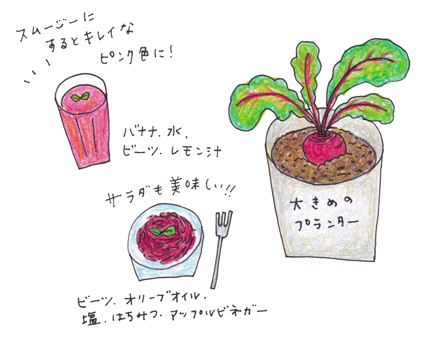 スムージーに
するとキレイな
ピンク色に!
バナナ、水、
ビーツ、レモン汁
サラダも美味しい!!
ビーツ、オリーブオイル、
塩、はちみつ、アップルビネガー
大きめの
プランター